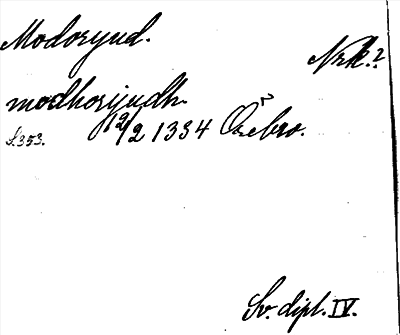 Modoryud.
Nrk.?
modhorijudh.
S. 353.
12/2 1334 Örebro.
Sv. dipl. IV.